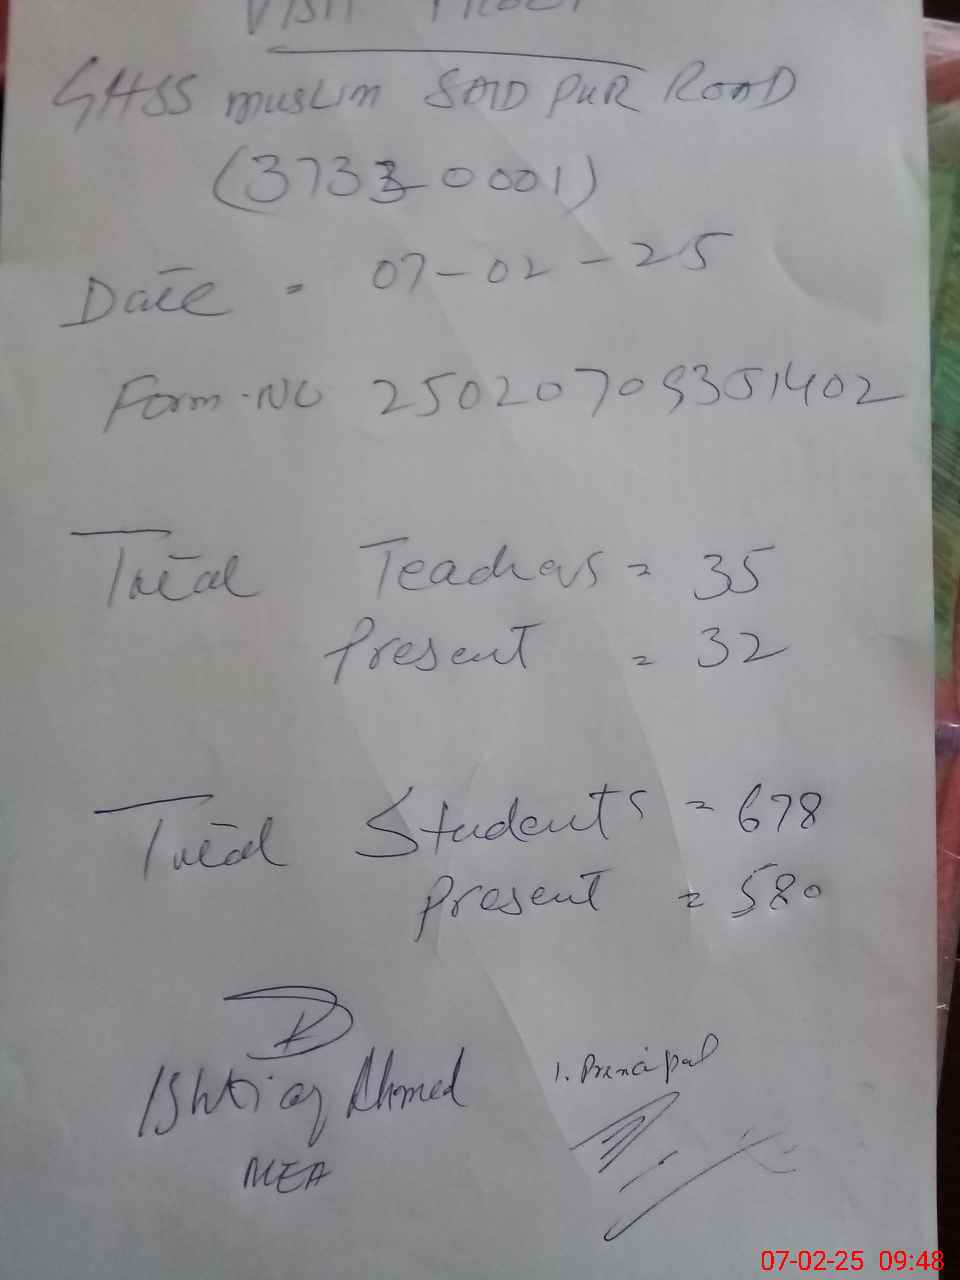 VISIT PROOF
GHSS MUSLIM SAID PUR ROAD
(37330001)
Date = 07-02-25
Form-No 25020709351402
Total Teachers = 35
Present = 32
Total Students = 678
Present = 580
Ishtiaq Ahmed
MEA
1. Principal
07-02-25 09:48